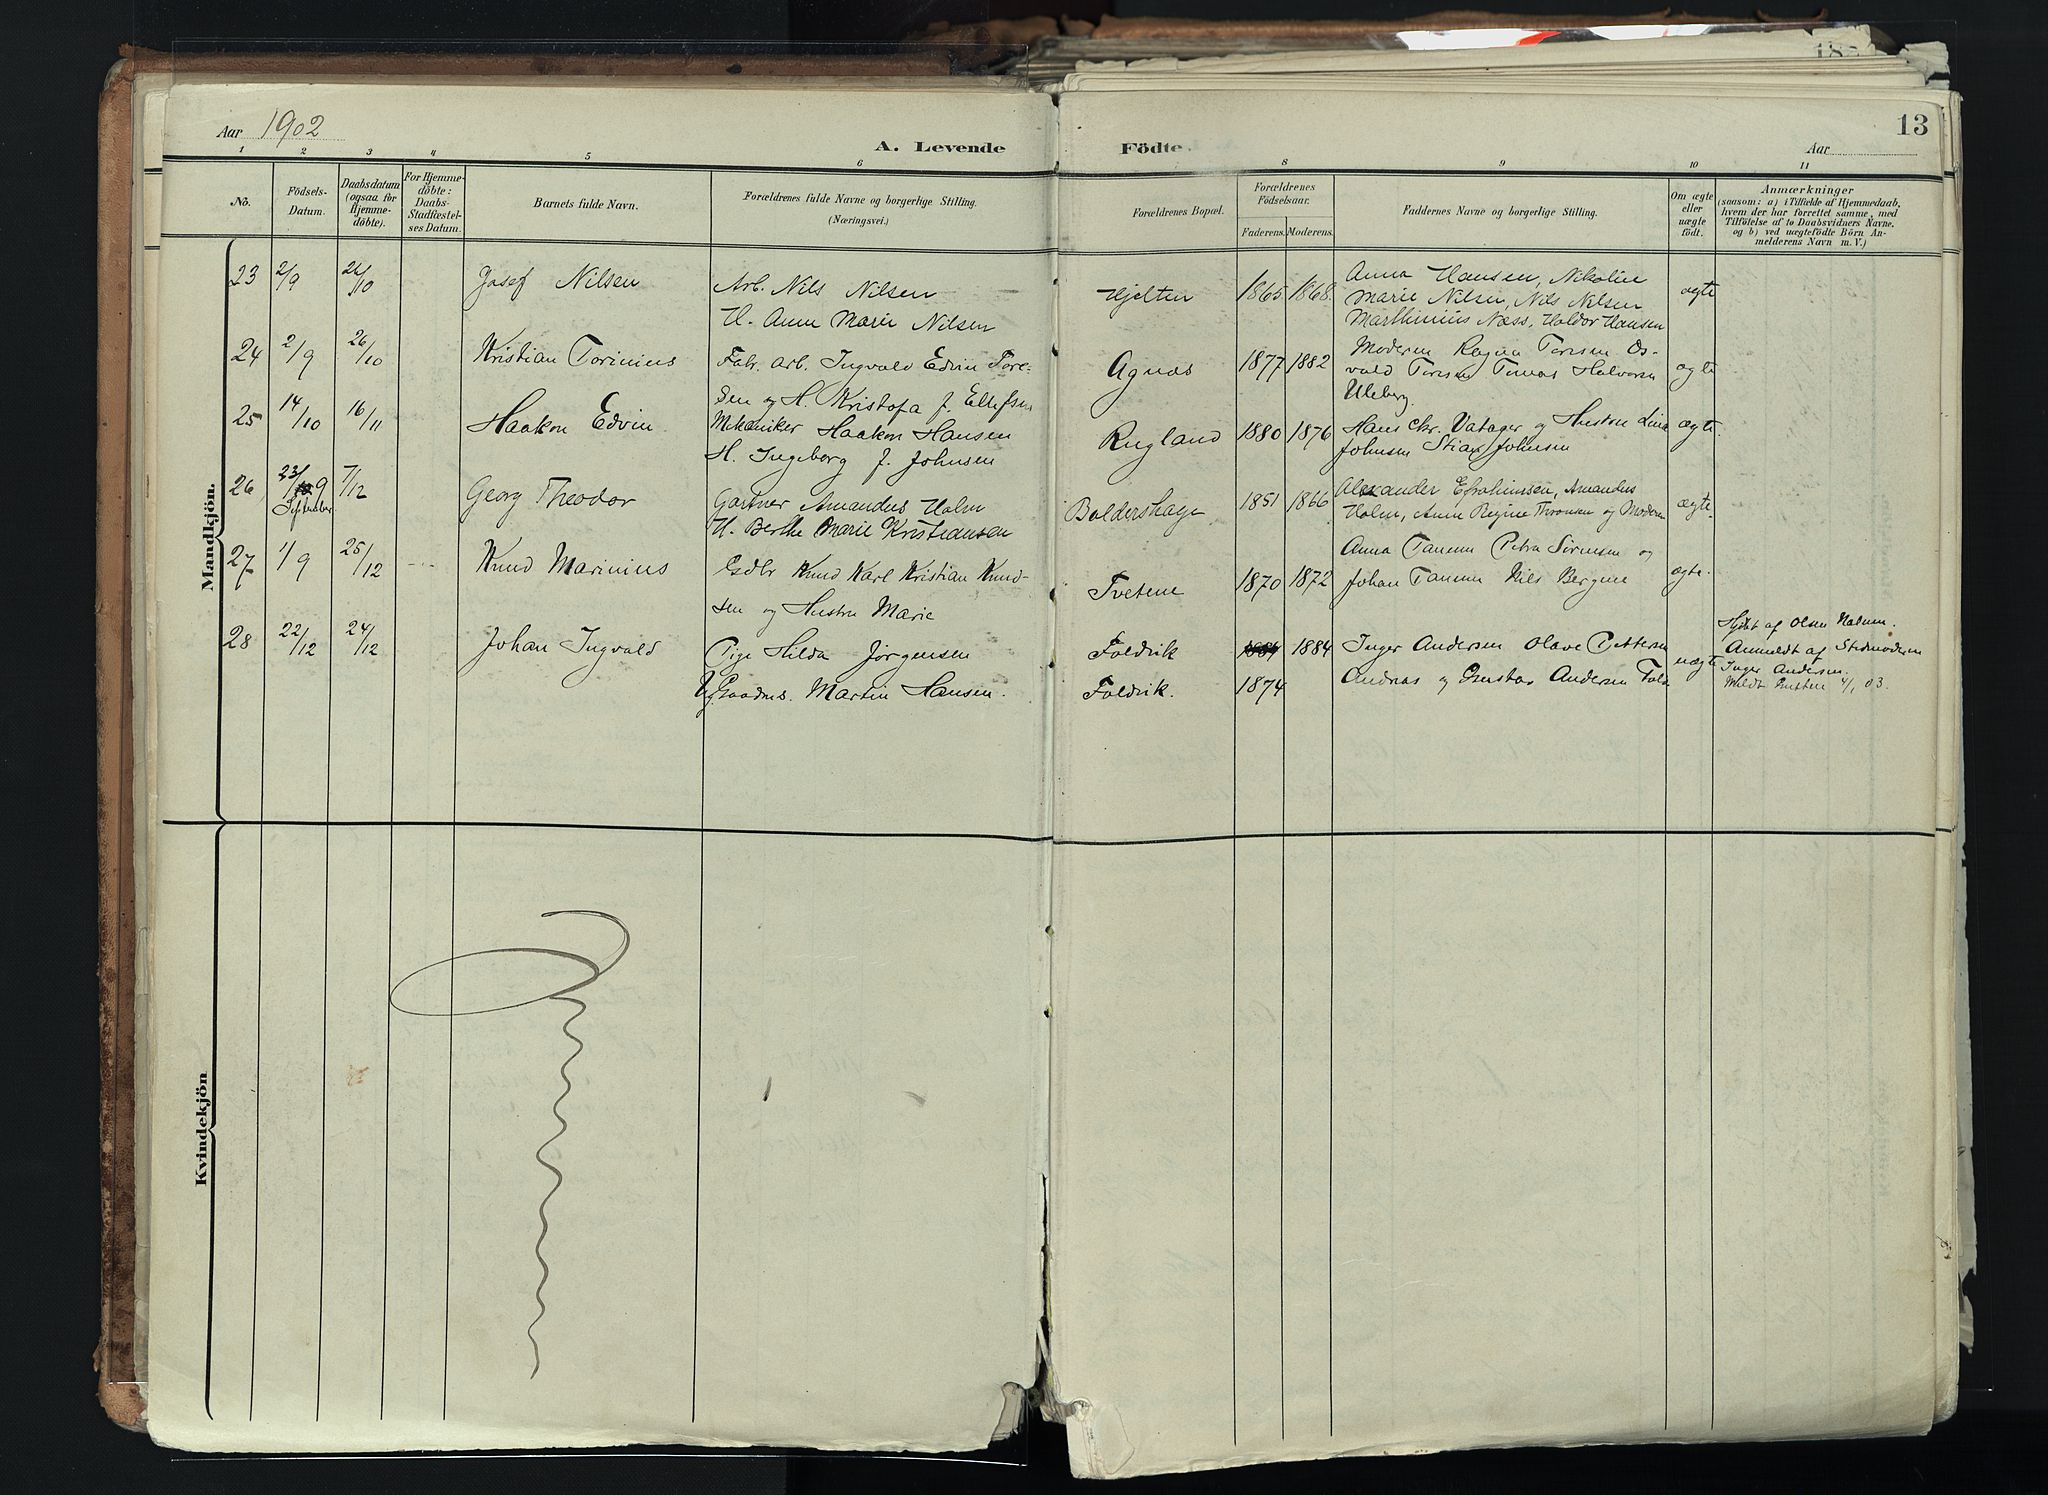 Aar 1902
A. Levende Födte.
13
Aar
1 2 3 4 5 6 8 9 10 11
No.
Födsels-
Datum.
Daabsdatum
(ogsaa for
Hjemme-
döbte).
For Hjemme-
döbte:
Daabs-
Stadfæstel-
ses Datum.
Barnets fulde Navn.
Forældrenes fulde Navne og borgerlige Stilling.
(Næringsvei.)
Forældrenes Bopæl.
Forældrenes
Födselsaar.
Faderens. Moderens.
Faddernes Navne og borgerlige Stilling.
Om ægte
eller
uægte
födt.
Anmærkninger
(saasom: a) i Tilfælde af Hjemmedaab,
hvem der har forrettet samme, med
Tilföielse af to Daabsvidners Navne.
og b) ved uægtefödte Börn An-
melderens Navn m. V.)
Mandkjön.
23 2/9 26/10 Josef Nilsen Arb. Nils Nilsen Hjelten 1865 1868. Anna Hansen, Nikoline ægte
H. Anne Marie Nilsen Marie Nilsen, Nils Nilsen
Marthinius Næss, Haldor Hansen
24 2/9 26/10 Kristian Torinius Fabr. Arb. Ingvald Edvin Tore- Agnæs 1877 1882 Moderen Regna Toresen Os- ægte
sen og H. Kristofa f. Ellefsen vald Toresen Tomas Halvorsen
Uleberg.
25 14/10 16/11 Haakon Edvin Mekaniker Haakon Hansen Rugland 1880 1876 Hans Chr. Vatager og Hustru Lina ægte.
H. Ingeborg f. Johnsen Johnsen Stian Johnsen
26 23/9 7/12 Georg Theodor Gartner Amandus Holm Boldershage 1851 1866 Alexander Efrahimsen, Amandus ægte.
September H. Berthe Marie Kristiansen Holm, Anne Regine Thronsen og Moderen
27 1/9 25/12 Knud Marinius Gdbr Knud Karl Kristian Knud- Tvetene 1870 1872 Anna Tanum Petra Sörensen og ægte.
sen og Hustru Marie Johan Tanum Nils Bergene
28 22/12 24/12 Johan Ingvald Pige Hilda Jørgensen Foldvik 1884 Inger Andersen Olave Pettersen uægte
Martin Hansen. Foldvik. 1874 Andreas og Gustav Andersen Fold
Hjdbt af Olsen
Anmeldt af Stedmoderen
Inger Andersen.
Meldt 4/1 03.
Kvindekjön